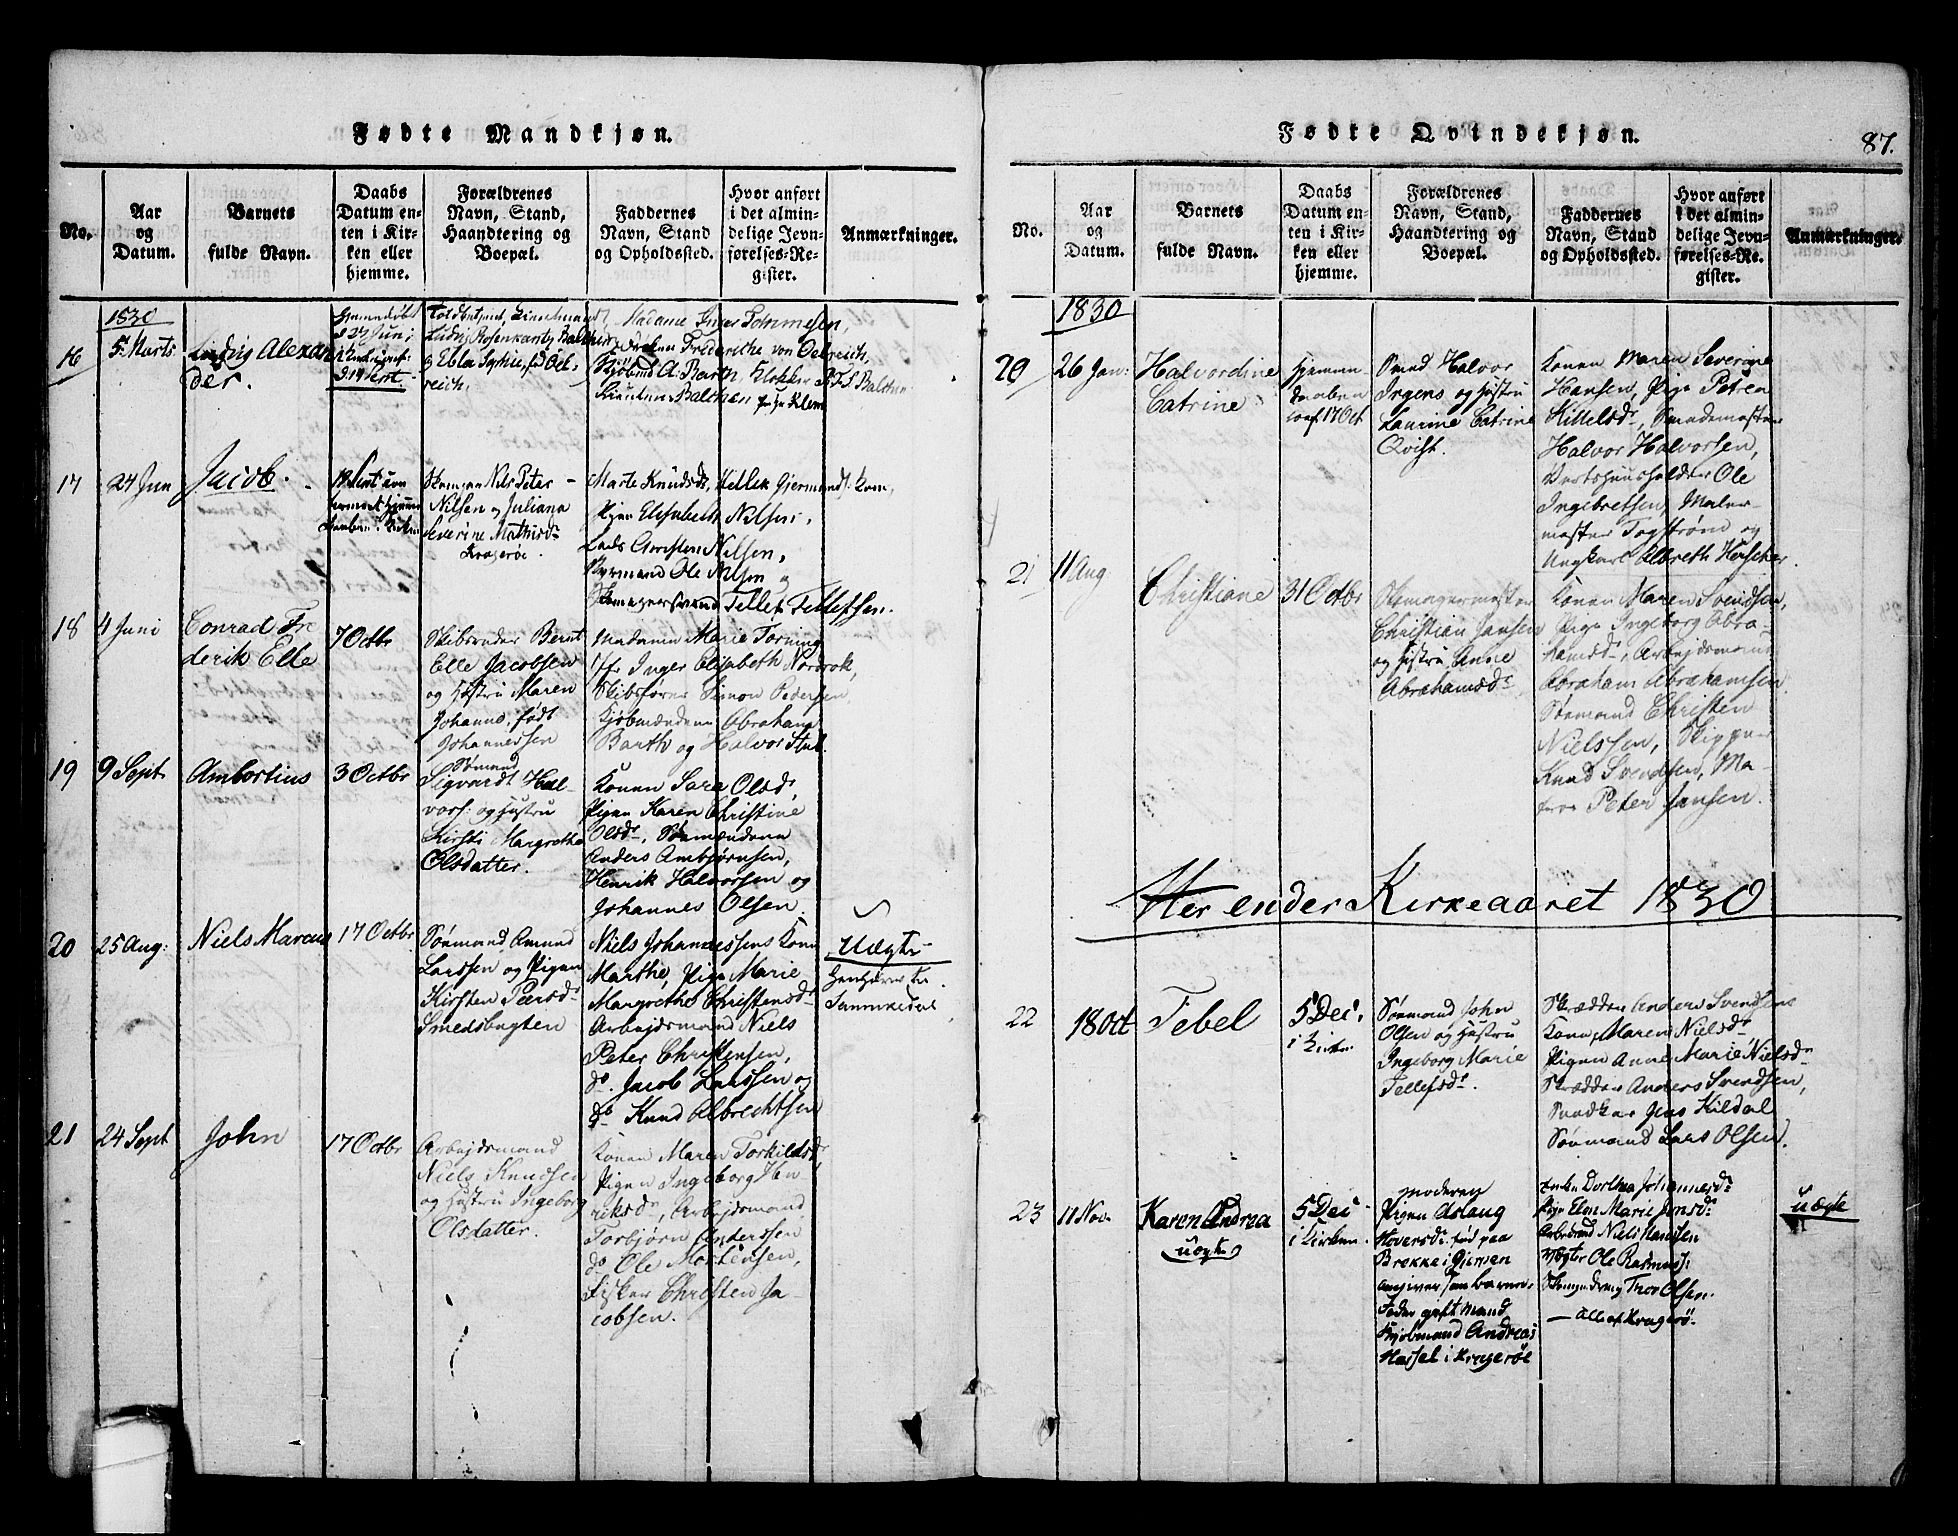 Fødte Mandkjøn.
No.
Aar
og
Datum.
Barnets
fulde Navn.
Daabs
Datum en-
ten i Kir-
ken eller
hjemme.
Forældrenes
Navn, Stand,
Haandtering og
Boepæl.
Faddernes
Navn, Stand
og Opholdssted.
Hvor anført
i det almin-
delige Jevn-
førelses-Re-
gister.
Anmærkninger.
1830
16
5 Marts
Ludvig Alexan
der.
27 Juni
Ludvig Rosenkrantz Balchen
og Ebba Sophie, fød Oel-
reich.
Madame Inger Tommesen,
Frøken Frederikke von Oelreich,
Kjøbmd A. Barth, Klokker
Lieutenn Balchen
17
24 Jun
Jacob.
Nils Peter
Nilsen og Juliana
Severine Mathisdr
Kragerøe.
Marte Knudsdr,
Pigen Elisabeth Nilsen,
Lods Christen Nilsen,
Styrmand Ole Nilsen og
Skomagersvend Tellef Tellefsen.
18
4 Juni
Conrad Fre
derik Elle
7 Octbr
Skibsreder Bernt
Elle Jacobsen
og Hustru Maren
Johanne, født
Johannessen
Madame Marie Torning
Jfr Inger Elisabeth
Skibsfører Simon Pedersen,
Kjøbmændene Abraham
Barth og Halvor
19
9 Septr
Ambortius
3 Octbr
Sømand
Sigvardt Hal-
vors. og Hustru
Kirsti Margrethe
Olsdatter.
Konen Sara Olsdr,
Pigen Karen Christine
Olsdr, Sømændene
Anders Ambjørnsen,
Henrik Halvorsen og
Johannes Olsen
20
25 Aug:
Niels Marcus
17 Octbr
Sømand Amund
Larssen og Pigen
Kirsten Peersdr
Smedsbugten
Niels Johannessens Kone
Marthe, Pige Marie
Margrethe Christensdr
Arbejdsmand Niels
Peter Christensen,
do Jacob Larssen og
do Knud Albrechtsen
Uægte
21
24 Sept
John
17 Octbr
Arbejdsmand
Niels Knudsen
og Hustru Ingeborg
Olsdatter.
Konen Maren Torkildsdr
Pigen Ingeborg Hen
riksdr, Arbejdsmand
Torbjørn Anderssen
do Ole Mortensen,
Fisker Christen Ja-
cobsen.
Fødte Qvindekjøn.
87.
No.
Aar
og
Datum.
Barnets
fulde Navn.
Daabs
Datum en-
ten i Kir-
ken eller
hjemme.
Forældrenes
Navn, Stand,
Haandtering og
Boepæl.
Faddernes
Navn, Stand
og Opholdssted.
Hvor anført
i det almin-
delige Jevn-
førelses-Re-
gister.
Anmærkninger.
1830
20
26 Jan:
Halvordine
Catrine
17 Oct
Smed Halvor
Irgens og Hustru
Laurine Catrine
Qvist.
Konen Maren Severine
Hansen, Pige Petrea
Kittelsdr, Smedemester
Halvor Halvorsen,
Vertshuusholder Ole
Ingebretsen, Maler-
mester Fogstrøm og
Ungkarl Albreth
21
11 Aug
Christiane
31 Octbr
Skomagermester
Christian Jansen
og Hustru Anne
Abrahamsdr
Konen Maren Svendsen,
Pige Ingeborg Abra-
hamsdr, Arbejdsmand
Abraham Abrahamsen
Sømand Christen
Nielssen, Skipper
Knud Svendsen, Ma-
tros Peter Jansen.
Her ender Kirkeaaret 1830
22
18 Oct
Tebel
5 Dec.
i Kirken
Sømand John
Olsen og Hustru
Ingeborg Marie
Tellefsdr.
Skrædder Anders Svendsens
Kone, Maren Nielsdr
Pigen Anne Marie Nielsdr
Skrædder Anders Svendsen,
Jens Kildal
Sømand Lars Olsen.
23
11 Nov.
Karen Andrea
uægte
5 Dec
i Kirken.
Moderen
Pigen Aslaug
Hoversdr. fød paa
Brekke i Gjersen
angiver som barne-
fader gift Mand
Kjøbmand Andreas
Hassel i Kragerøe
Enken Dorthea Johannesdr
Pige Elen Marie Jensdr
Niels Hansen
Ole Rasmus:
Thor Olsen.
— alle af Kragerø.
uægte